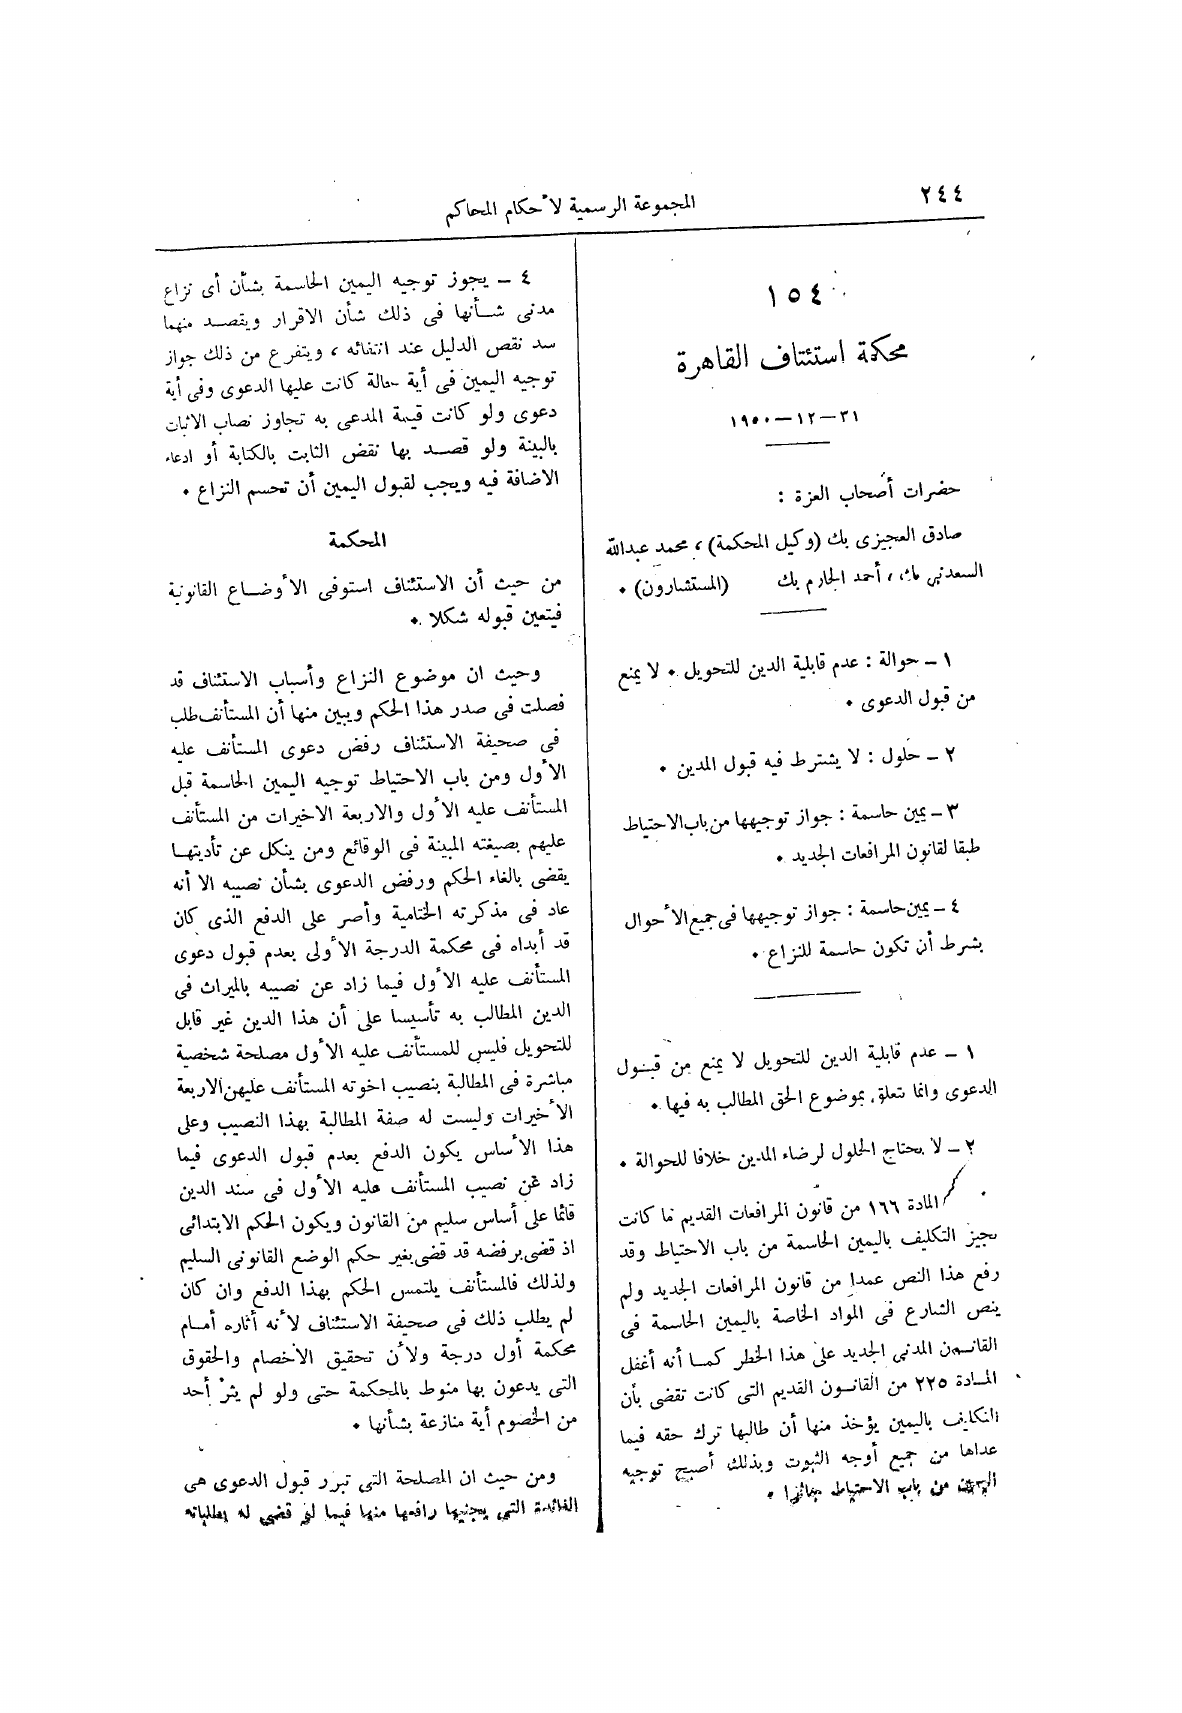 ٢٤٤
المجموعة الرسمية لأحكام المحاكم
١٥٤
محكمة استئناف القاهرة
٣١–١٢–١٩٥٠
حضرات أصحاب العزة :
صادق العجيزى بك (وكيل المحكمة) ، محمد عبدالله
السعدنى بك ، أحمد الجارم بك (المستشارون) .
١ – حوالة : عدم قابلية الدين للتحويل . لا يمنع
من قبول الدعوى .
٢ – حلول : لا يشترط فيه قبول المدين .
٣ – يمين حاسمة : جواز توجيهها من باب الاحتياط
طبقا لقانون المرافعات الجديد .
٤ – يمين حاسمة : جواز توجيهها فى جميع الأحوال
بشرط أن تكون حاسمة للنزاع .
١ – عدم قابلية الدين للتحويل لا يمنع من قبول
الدعوى وانما تتعلق بموضوع الحق المطالب به فيها .
٢ – لا يحتاج الحلول لرضاء المدين خلافا للحوالة .
المادة ١٦٦ من قانون المرافعات القديم ما كانت
تجيز التكليف باليمين الحاسمة من باب الاحتياط وقد
رفع هذا النص عمدا من قانون المرافعات الجديد ولم
ينص الشارع فى المواد الخاصة باليمين الحاسمة فى
القانون المدنى الجديد على هذا الخطر كما أنه أغفل
المادة ٢٢٥ من القانون القديم التى كانت تقضى بأن
التكليف باليمين يؤخذ منها أن طالبها ترك حقه فيما
عداها من جميع أوجه الثبوت وبذلك أصبح توجيه
اليمين من باب الاحتياط جائزا .
٤ – يجوز توجيه اليمين الحاسمة بشأن أى نزاع
مدنى شأنها فى ذلك شأن الاقرار ويقصد منهما
سد نقص الدليل عند انتفائه ، ويتفرع من ذلك جواز
توجيه اليمين فى أية حالة كانت عليها الدعوى وفى أية
دعوى ولو كانت قيمة المدعى به تجاوز نصاب الاثبات
بالبينة ولو قصد بها نقض الثابت بالكتابة أو ادعاء
الاضافة فيه ويجب لقبول اليمين أن تحسم النزاع .
المحكمة
من حيث أن الاستئناف استوفى الأوضاع القانونية
فيتعين قبوله شكلا .
وحيث ان موضوع النزاع وأسباب الاستئناف قد
فصلت فى صدر هذا الحكم ويبين منها أن المستأنف طلب
فى صحيفة الاستئناف رفض دعوى المستأنف عليه
الأول ومن باب الاحتياط توجيه اليمين الحاسمة قبل
المستأنف عليه الأول والاربعة الاخيرات من المستأنف
عليهم بصيغته المبينة فى الوقائع ومن ينكل عن تأديتها
يقضى بالغاء الحكم ورفض الدعوى بشأن نصيبه الا أنه
عاد فى مذكرته الختامية وأصر على الدفع الذى كان
قد أبداه فى محكمة الدرجة الأولى بعدم قبول دعوى
المستأنف عليه الأول فيما زاد عن نصيبه بالميراث فى
الدين المطالب به تأسيسا على أن هذا الدين غير قابل
للتحويل فليس للمستأنف عليه الأول مصلحة شخصية
مباشرة فى المطالبة بنصيب اخوته المستأنف عليهن الاربعة
الأخيرات وليست له صفة المطالبة بهذا النصيب وعلى
هذا الأساس يكون الدفع بعدم قبول الدعوى فيما
زاد عن نصيب المستأنف عليه الأول فى سند الدين
قائما على أساس سليم من القانون ويكون الحكم الابتدائى
اذ قضى برفضه قد قضى بغير حكم الوضع القانونى السليم
ولذلك فالمستأنف يلتمس الحكم بهذا الدفع وان كان
لم يطلب ذلك فى صحيفة الاستئناف لأنه أثاره أمام
محكمة أول درجة ولأن تحقيق الأخصام والحقوق
التى يدعون بها منوط بالمحكمة حتى ولو لم يثر أحد
من الخصوم أية منازعة بشأنها .
ومن حيث ان المصلحة التى تبرر قبول الدعوى هى
الفائدة التى يجنيها رافعها منها فيما لو قضى له بطلباته